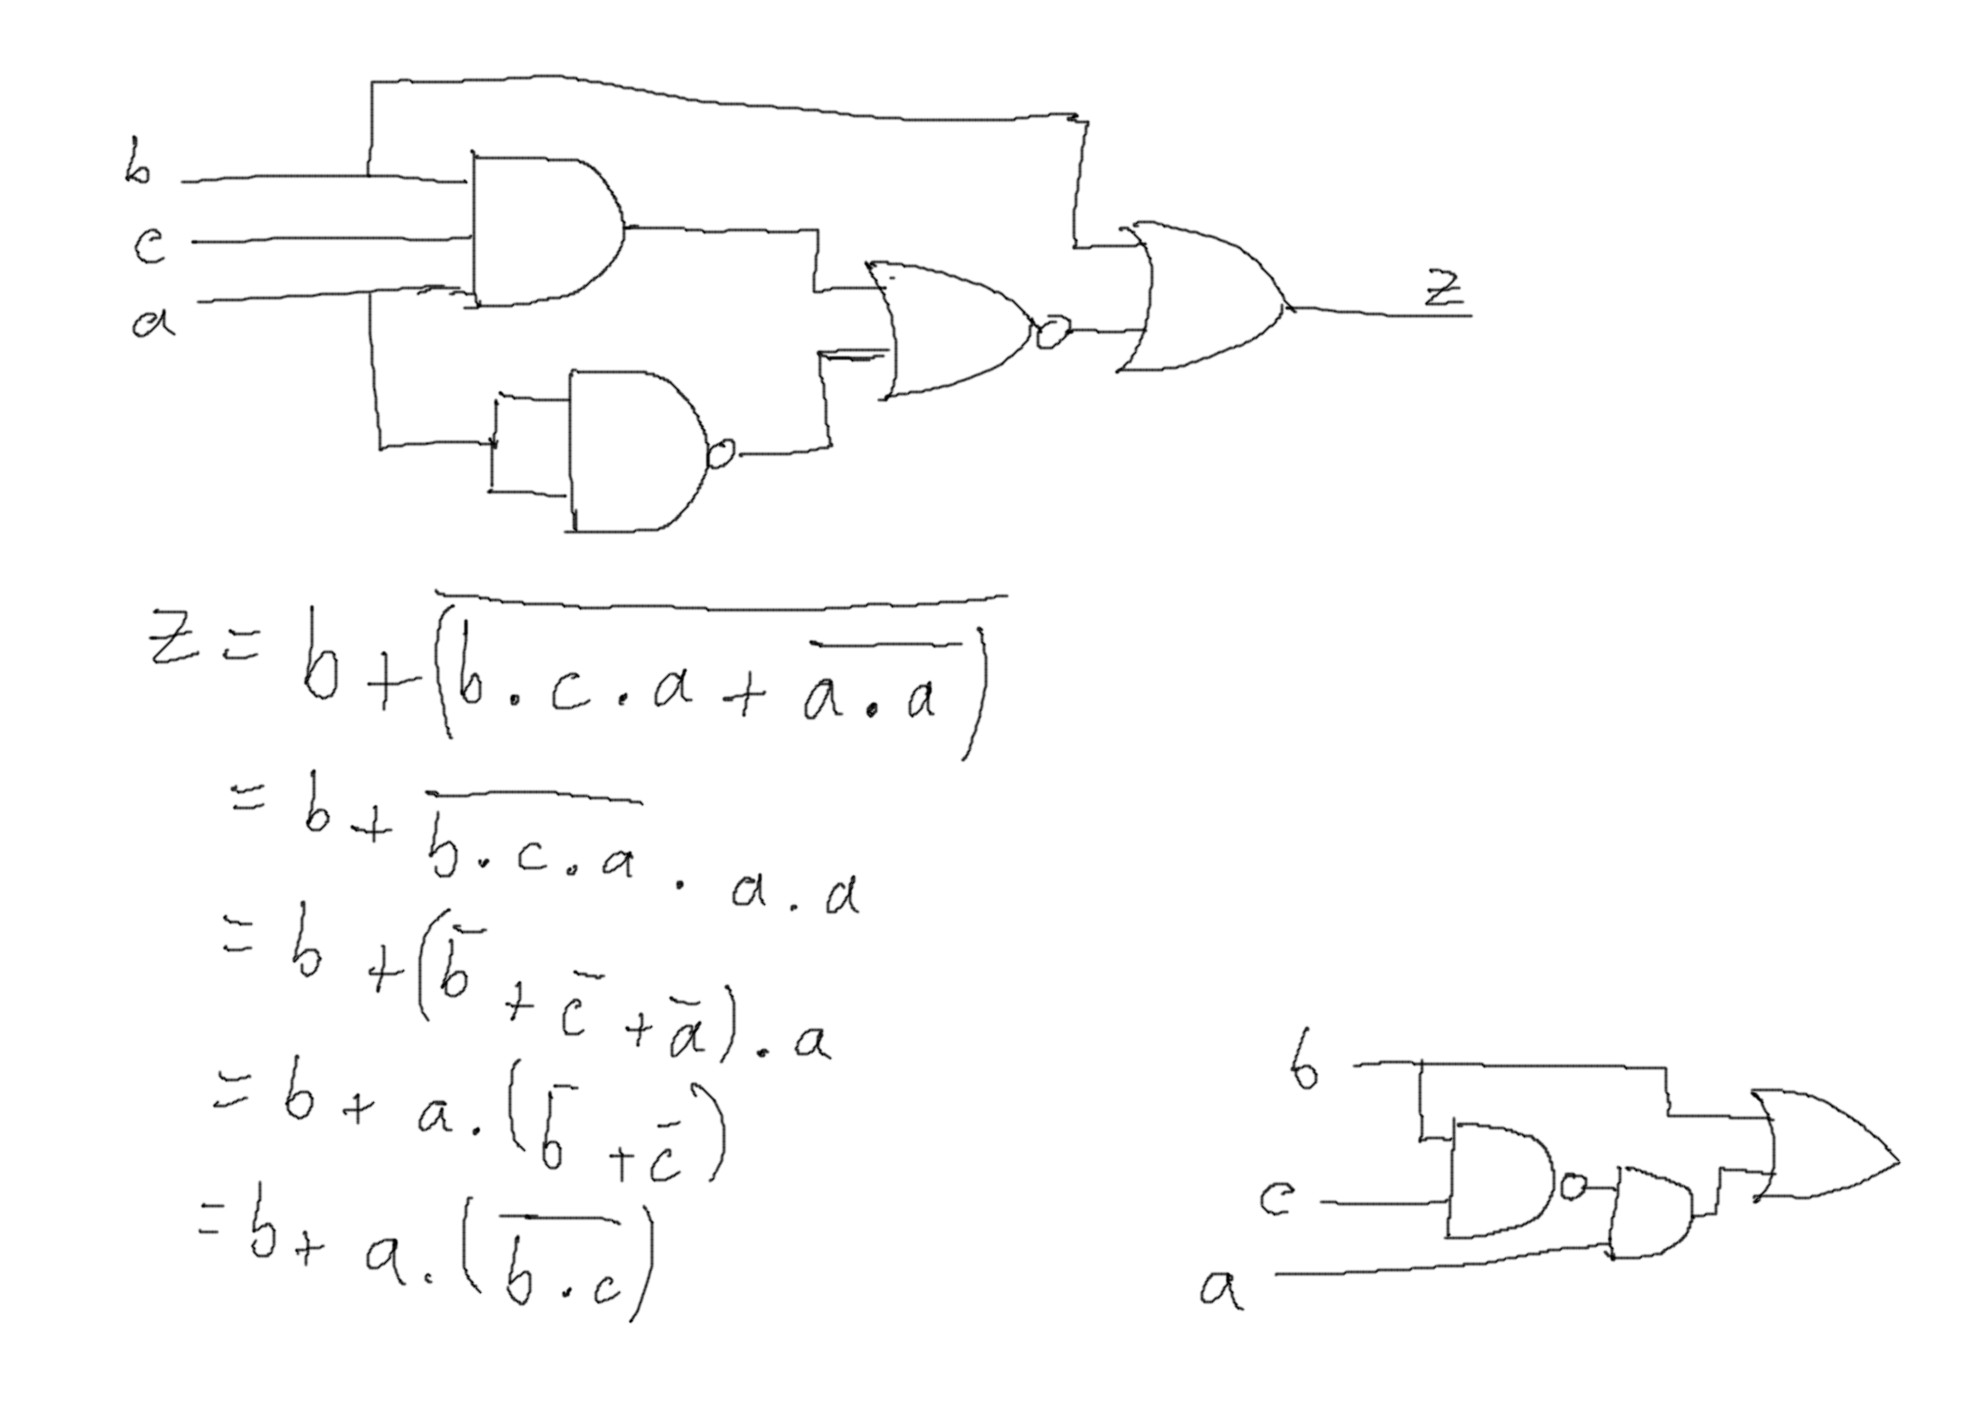 b
c
a
z
z = b + \overline{(b . c . a + \overline{a . a})}
= b + \overline{b . c . a} . a . a
= b + (b̄ + c̄ + ā) . a
= b + a . (b̄ + c̄)
= b + a . (\overline{b . c})
b
c
a